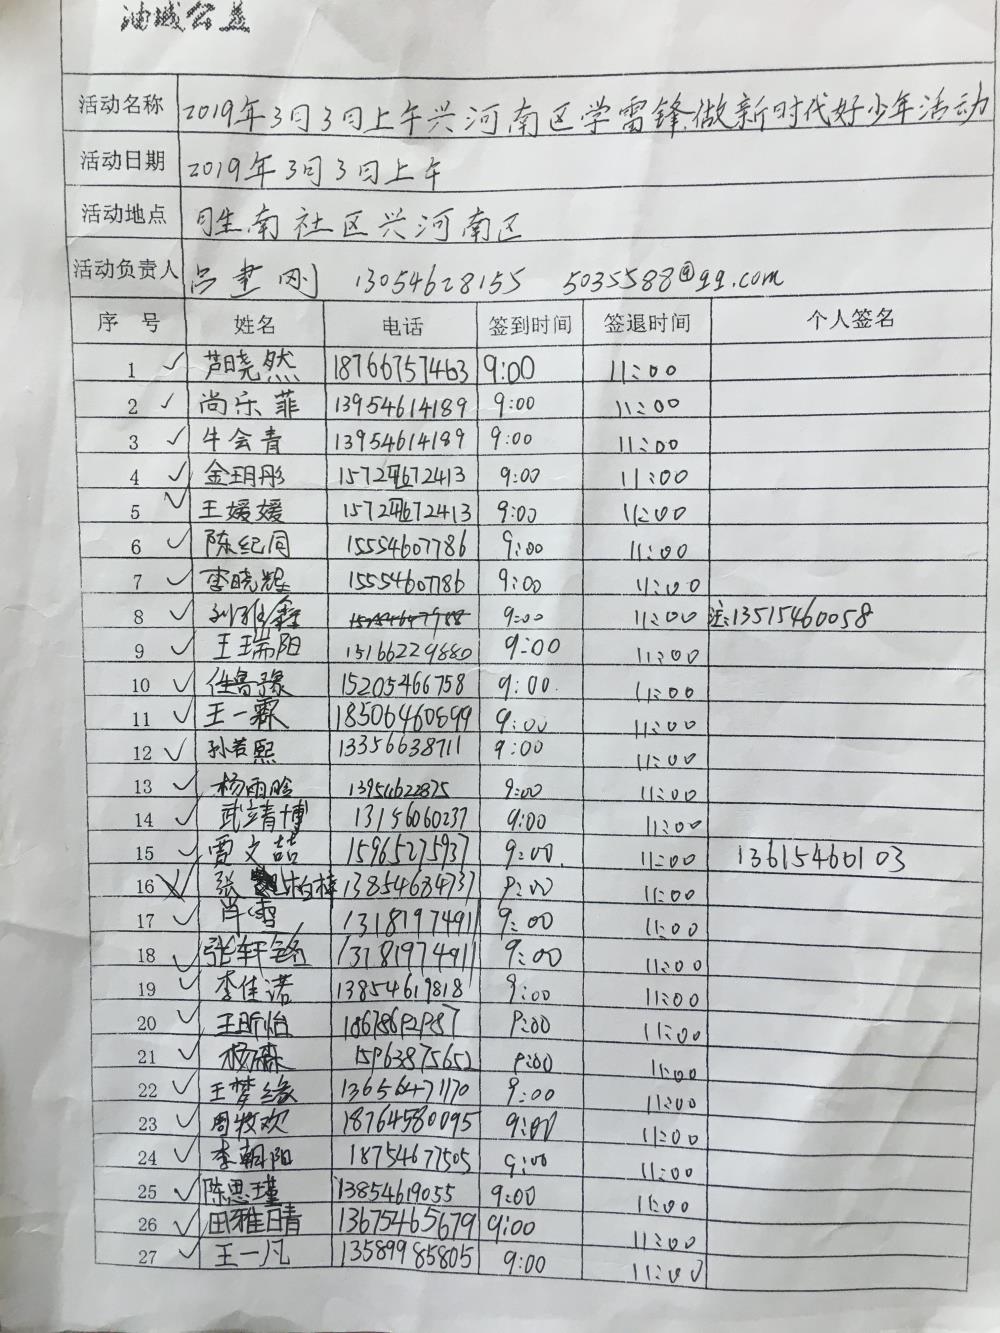 油城公益
活动名称 2019年3月3日上午兴河南区学雷锋.做新时代好少年活动
活动日期 2019年3月3日上午
活动地点 胜南社区兴河南区
活动负责人 吕建刚 13054628155 5035588@qq.com
序 号 姓名 电话 签到时间 签退时间 个人签名
1 ✓ 芦晓然 18766757463 9:00 11:00
2 ✓ 尚乐菲 13954614189 9:00 11:00
3 ✓ 牛会青 13954614189 9:00 11:00
4 ✓ 金玥彤 15724672413 9:00 11:00
5 ✓ 王媛媛 15724672413 9:00 11:00
6 ✓ 陈纪同 15554607786 9:00 11:00
7 ✓ 李晓辉 15554607786 9:00 11:00
8 ✓ 刘雅鑫 9:00 11:00 注:13515460058
9 ✓ 王瑞阳 15166229880 9:00 11:00
10 ✓ 任鲁豫 15205466758 9:00 11:00
11 ✓ 王一霖 18506460699 9:00 11:00
12 ✓ 孙若熙 13356638711 9:00 11:00
13 ✓ 杨雨晗 13954622875 9:00 11:00
14 ✓ 武靖博 13156060237 9:00 11:00
15 ✓ 贾文喆 15965275937 9:00 11:00 13615460103
16 ✓ 张柏梓 13854684737 9:00 11:00
17 ✓ 肖雪 13181974911 9:00 11:00
18 ✓ 张轩铭 13181974911 9:00 11:00
19 ✓ 李佳诺 13854619818 9:00 11:00
20 ✓ 王昕怡 9:00 11:00
21 ✓ 杨森 15963875652 9:00 11:00
22 ✓ 王梦缘 13656471170 9:00 11:00
23 ✓ 周牧欢 18764580095 9:00 11:00
24 ✓ 李朝阳 18754677505 9:00 11:00
25 ✓ 陈思瑾 13854619055 9:00 11:00
26 ✓ 田雅晴 13675465679 9:00 11:00
27 ✓ 王一凡 13589985805 9:00 11:00